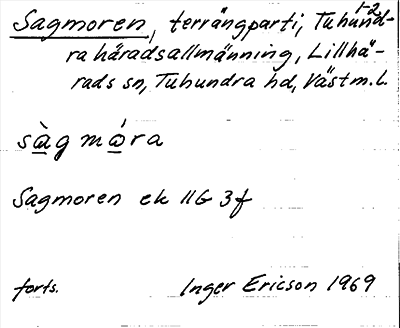 1-2
Sagmoren, terrängparti, Tuhund-
ra häradsallmänning, Lillhä-
rads sn, Tuhundra hd, Västm.l.
sàg móra
Sagmoren ek 11G 3f
forts. Inger Ericson 1969